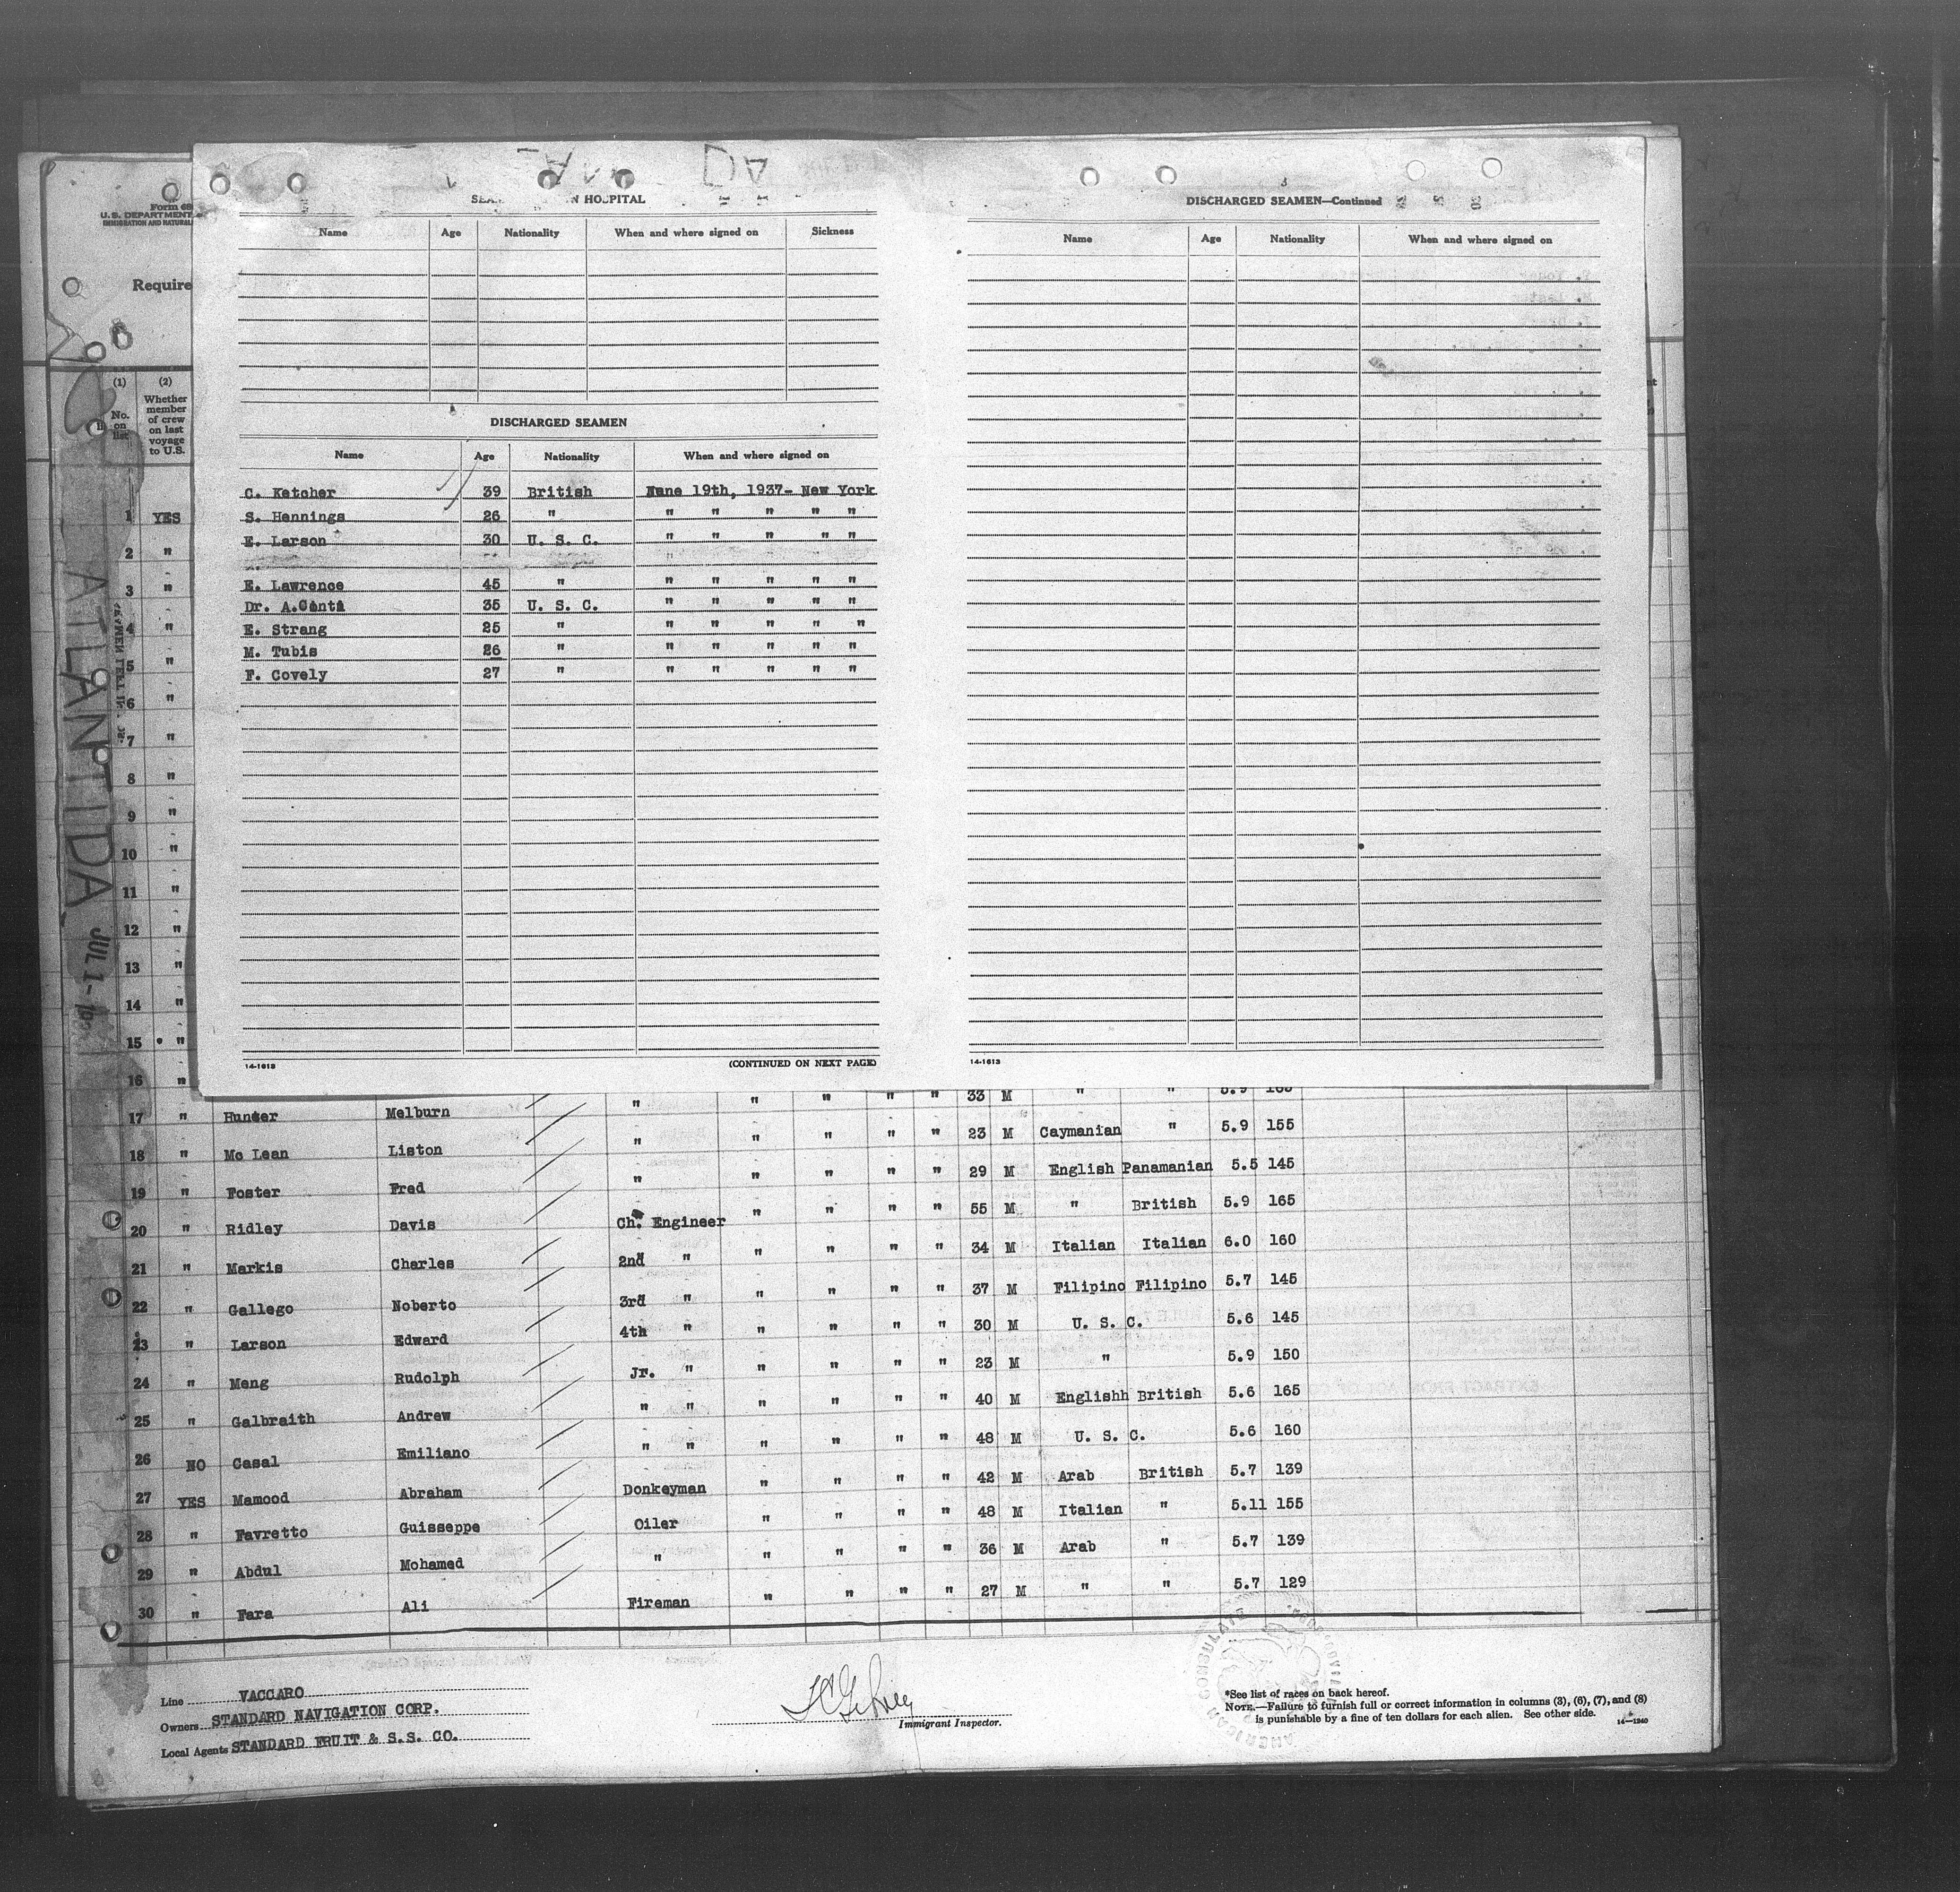 Form 68
U.S. DEPARTMENT
IMMIGRATION AND NATURAL
Require
(1) (2)
No. on list
Whether member of crew on last voyage to U.S.
ATLANTIDA JUL 1-
N HOSPITAL
Name Age Nationality When and where signed on Sickness
DISCHARGED SEAMEN
Name Age Nationality When and where signed on
C. Ketcher 39 British June 19th, 1937- New York
S. Hennings 26 " " " " " "
E. Larson 30 U. S. C. " " " " "
E. Lawrence 45 " " " " " "
Dr. A.Conti 35 U. S. C. " " " " "
E. Strang 25 " " " " " "
M. Tubis 26 " " " " " "
F. Covely 27 " " " " " "
14-1613 (CONTINUED ON NEXT PAGE)
DISCHARGED SEAMEN—Continued
Name Age Nationality When and where signed on
14-1613
1 YES
2 "
3 "
4 "
5 "
6 "
7 "
8 "
9 "
10 "
11 "
12 "
13 "
14 "
15 "
16 " " " " " " 33 M " " 5.9 165
17 " Hunter Melburn " " " " " 23 M Caymanian " 5.9 155
18 " Mc Lean Liston " " " " " 29 M English Panamanian 5.5 145
19 " Foster Fred " " " " " 55 M " British 5.9 165
20 " Ridley Davis Ch. Engineer " " " " 34 M Italian Italian 6.0 160
21 " Markis Charles 2nd " " " " " 37 M Filipino Filipino 5.7 145
22 " Gallego Noberto 3rd " " " " " 30 M U. S. C. 5.6 145
23 " Larson Edward 4th " " " " " 23 M " 5.9 150
24 " Meng Rudolph Jr. " " " " " 40 M Englishh British 5.6 165
25 " Galbraith Andrew " " " " " " 48 M U. S. C. 5.6 160
26 NO Casal Emiliano " " " " " " 42 M Arab British 5.7 139
27 YES Mamood Abraham Donkeyman " " " " 48 M Italian " 5.11 155
28 " Favretto Guisseppe Oiler " " " " 36 M Arab " 5.7 139
29 " Abdul Mohamed " " " " " 27 M " " 5.7 129
30 " Fara Ali Fireman " " " "
Line VACCARO
Owners STANDARD NAVIGATION CORP.
Local Agents STANDARD FRUIT & S.S. CO.
Immigrant Inspector.
*See list of races on back hereof.
NOTE.—Failure to furnish full or correct information in columns (3), (6), (7), and (8)
is punishable by a fine of ten dollars for each alien. See other side.
14—1240
AMERICAN CONSULATE